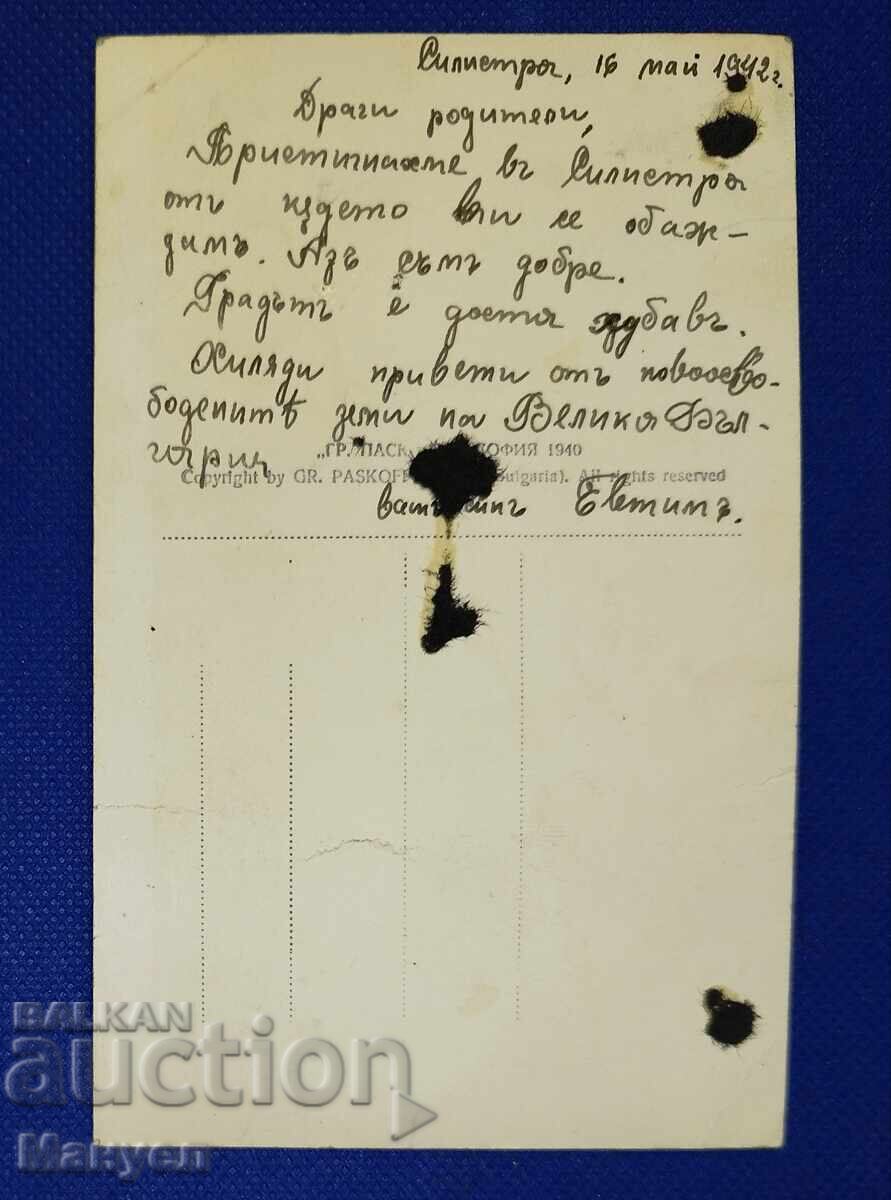 Силистра, 16 май 1942г.
Драги родители,
Пристигнахме въ Силистра
отъ където ви се обаж-
димъ. Азъ съмъ добре.
Градътъ е доста хубавъ.
Хиляди привети отъ новоосво-
боденитѣ земи на Велика Бъл-
гария
„ГР. ПАСК ОФИЯ 1940
Copyright by GR. PASKOFF ulgaria). All rights reserved
вашъ синъ Евтимъ.
BALKAN
auction
Мануел